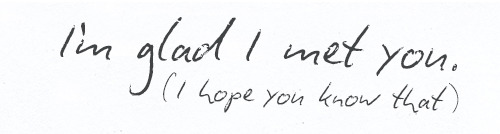 I'm glad I met you.
(I hope you know that)